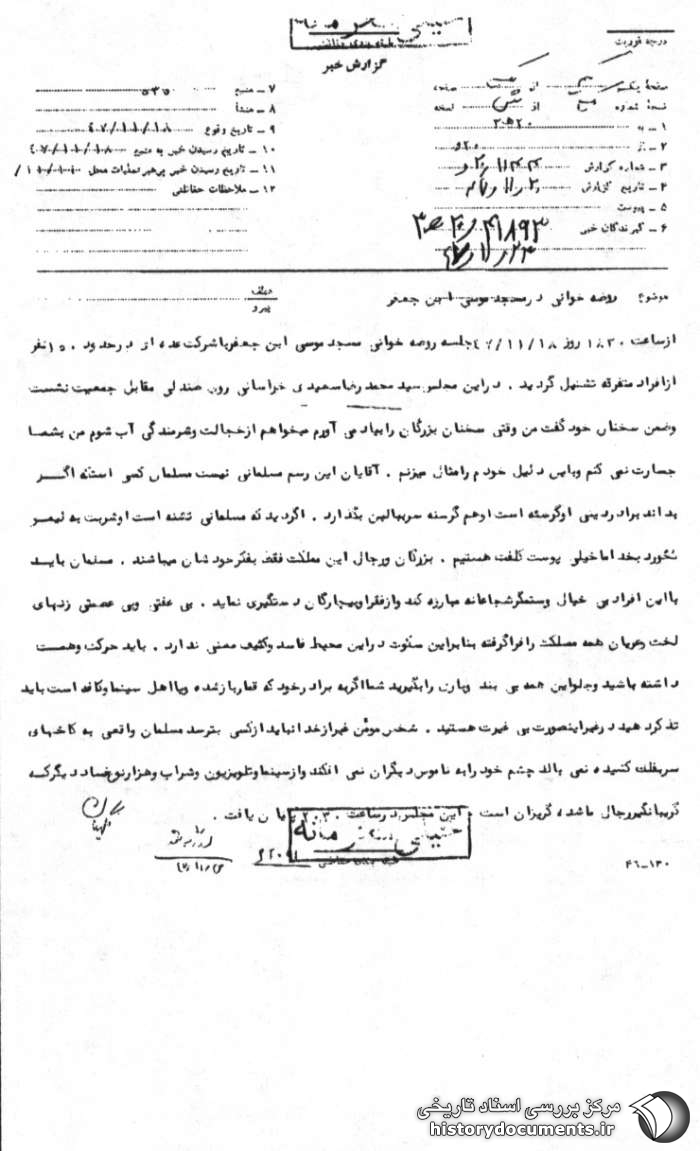 خیلی محرمانه
طبقه بندی حفاظتی
درجه فوریت
گزارش خبر
صفحه یک از یک صفحه
نسخه شماره از نسخه
۱ ـ به
۲ ـ از
۳ ـ شماره گزارش
۴ ـ تاریخ گزارش
۵ ـ پیوست
۶ ـ گیرندگان خبر
۷ ـ منبع
۸ ـ منشأ
۹ ـ تاریخ وقوع ۴۷/۱۱/۱۸
۱۰ ـ تاریخ رسیدن خبر به منبع ۴۷/۱۱/۱۸
۱۱ ـ تاریخ رسیدن خبر برهبر عملیات محل
۱۲ ـ ملاحظات حفاظتی
موضوع روضه خوانی در مسجد موسی ابن جعفر
عطف
پیرو
از ساعت ۱۸۳۰ روز ۴۷/۱۱/۱۸ جلسه روضه خوانی مسجد موسی ابن جعفر با شرکت عده ای در حدود ۱۵۰ نفر
از افراد متفرقه تشکیل گردید . در این مجلس سید محمد رضا سعیدی خراسانی روی صندلی مقابل جمعیت نشست
وضمن سخنان خود گفت من وقتی سخنان بزرگان را بیاد می آورم میخواهم از خجالت وشرمندگی آب شوم من بشما
جسارت نمی کنم وباین دلیل خودم را مثال میزنم . آقایان این رسم مسلمانی نیست مسلمان کسی است که اگر
بداند برادر دینی او گرسنه است او هم گرسنه سر ببالین بگذارد . اگر دید که مسلمانی تشنه است او شربت به لیمو
نخورد بخدا ما خیلی پوست کلفت هستیم . بزرگان ورجال این مملکت فقط بفکر خودشان میباشند . مسلمان باید
با این افراد بی خیال وستمگر شجاعانه مبارزه کند واز فقرا وبیچارگان دستگیری نماید . بی عفتی وبی عصمتی زنهای
لخت وعریان همه مملکت را فرا گرفته بنابراین سکوت در این محیط فاسد وکثیف معنی ندارد . باید حرکت وهمت
داشته باشید وجلو این همه بی بند وباری را بگیرید شما اگر به برادر خود که قمارباز شده ویا اهل سینما وکافه است باید
تذکر دهید در غیر اینصورت بی غیرت هستید . شخص مؤمن غیر از خدا نباید از کسی بترسد مسلمان واقعی به کاخهای
سر بفلک کشیده نمی بالد چشم خود را به ناموس دیگران نمی افکند واز سینما وتلویزیون وشراب وهزار نوع فساد دیگر که
گریبانگیر رجال ما شده گریزان است . این مجلس در ساعت ۲۰۳۰ پایان یافت .
خیلی محرمانه
طبقه بندی حفاظتی
۴۶ـ۱۳۰
مرکز بررسی اسناد تاریخی
historydocuments.ir